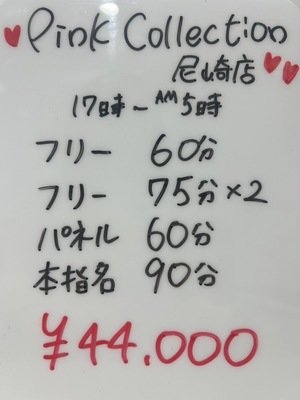 Pink Collection
尼崎店
17時-AM5時
フリー 60分
フリー 75分×2
パネル 60分
本指名 90分
¥44.000